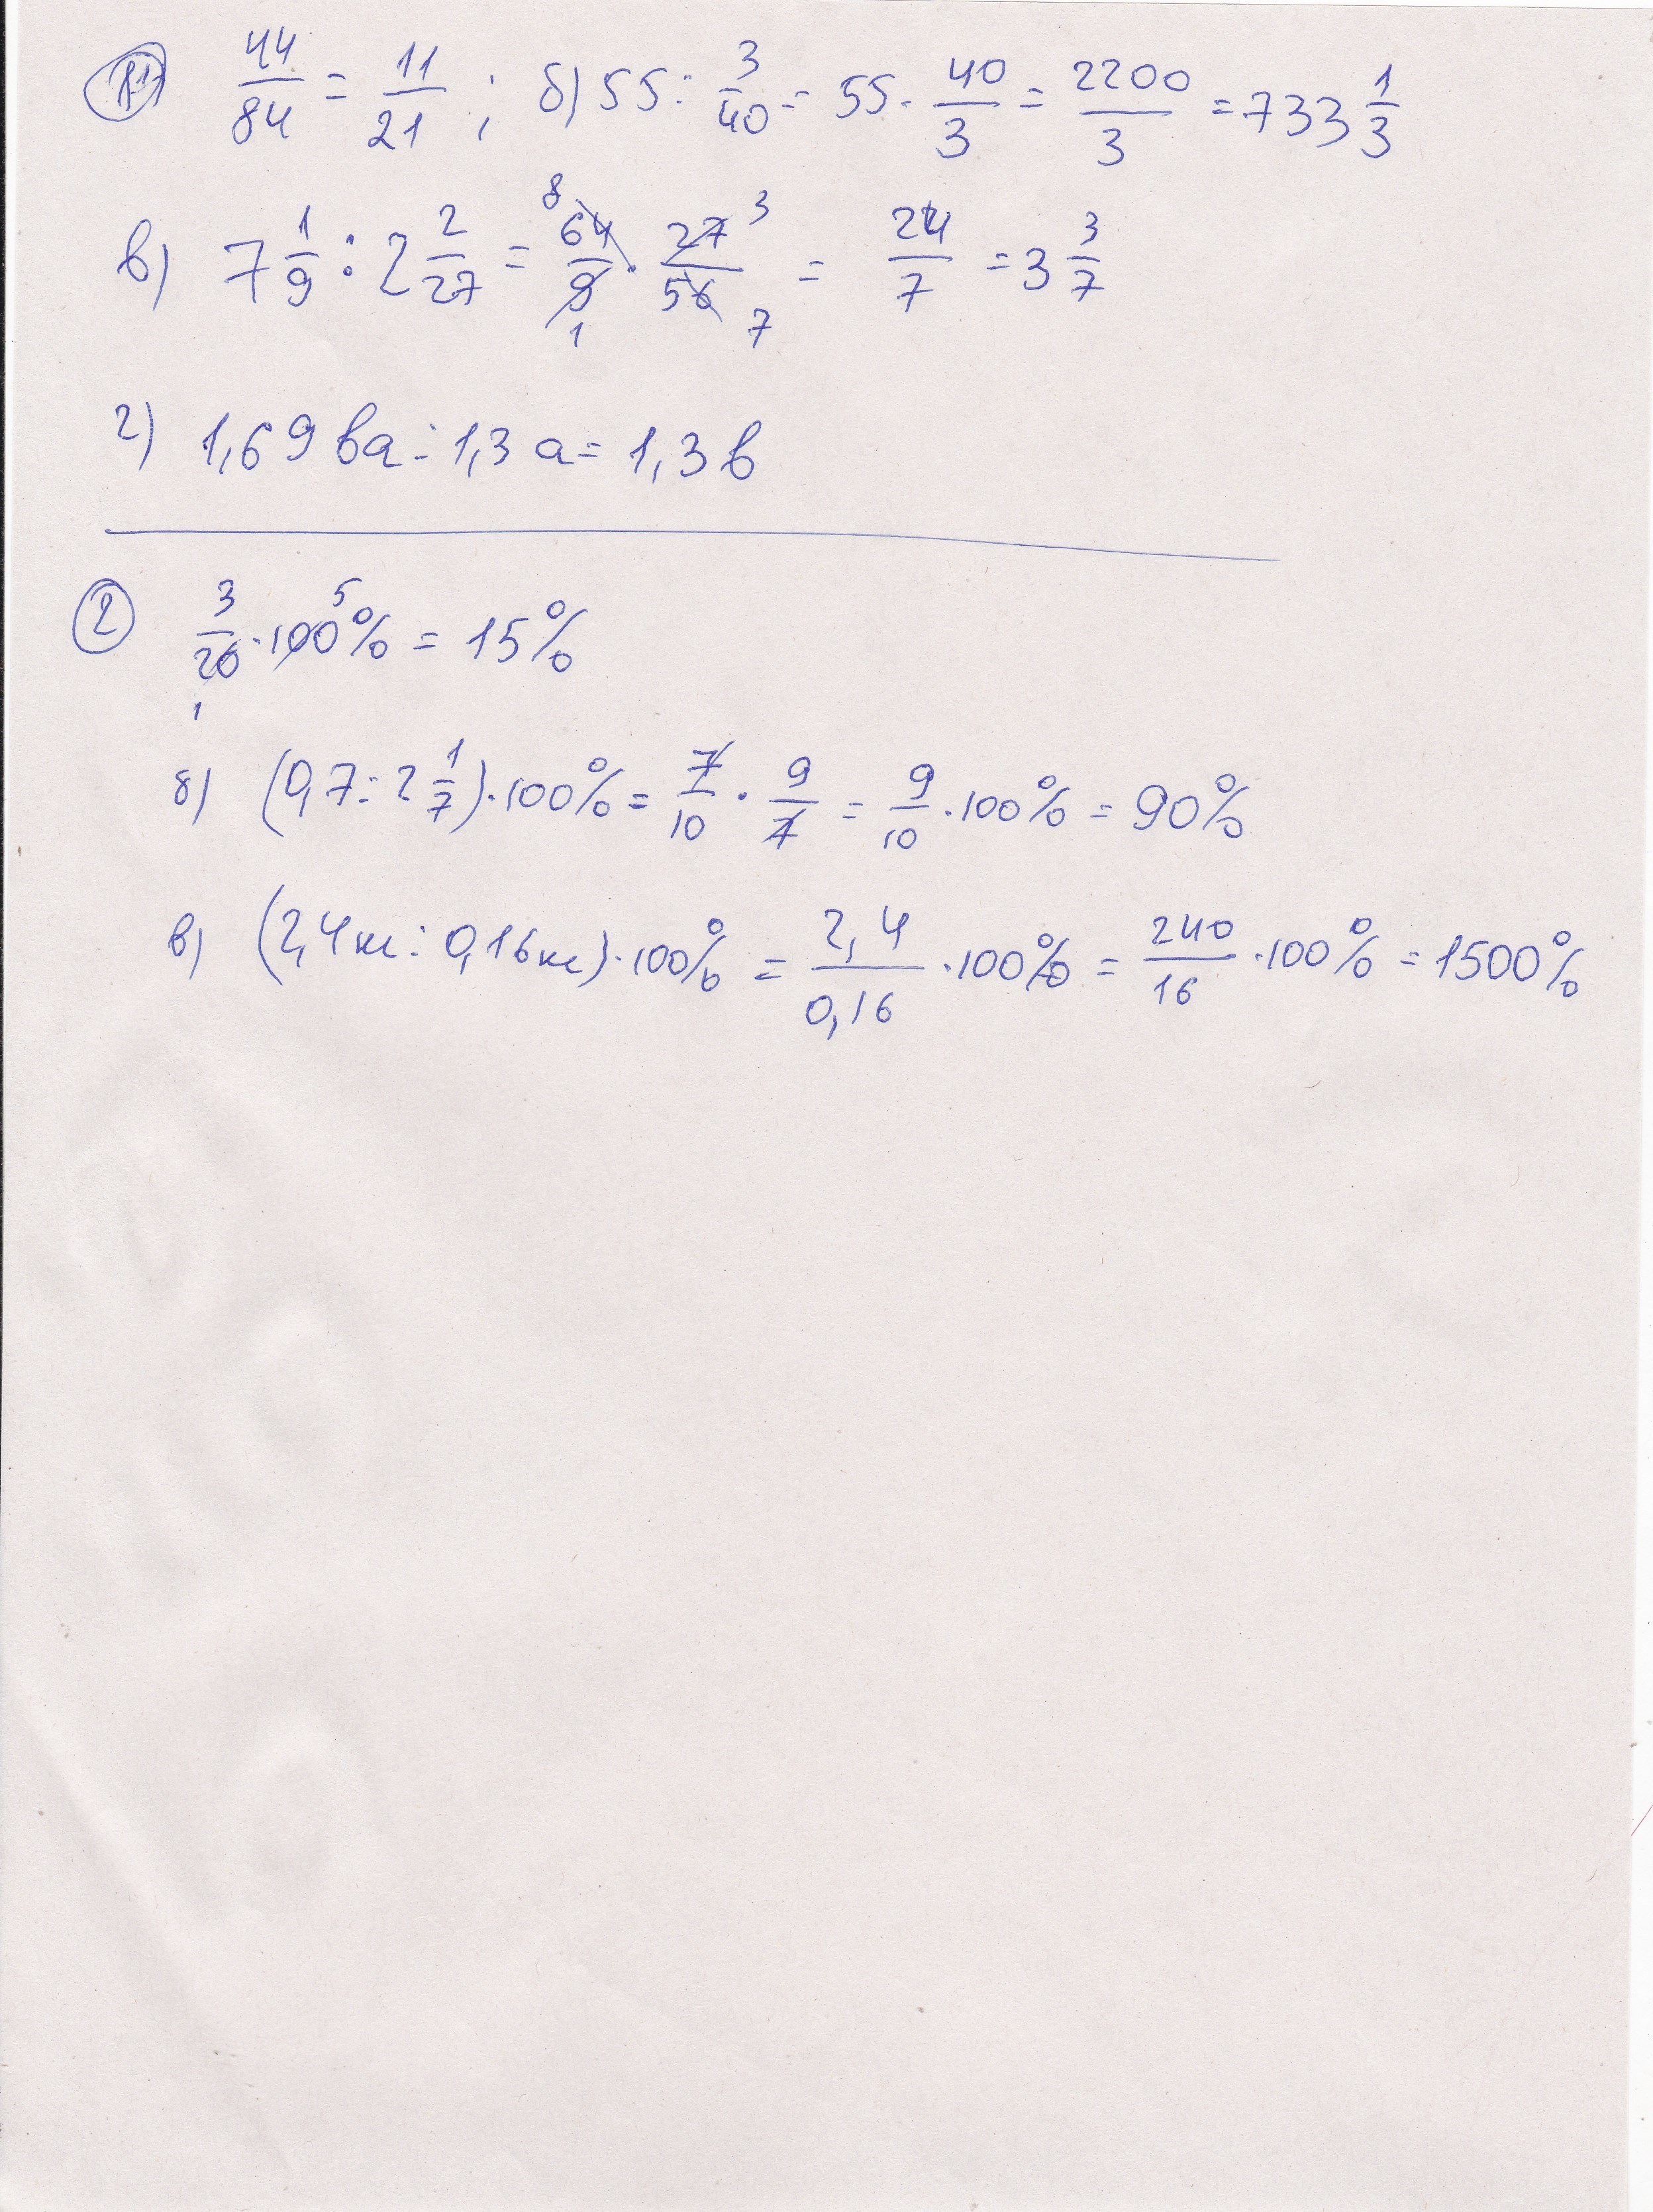 1) 44/84 = 11/21 ; б) 55 : 3/40 = 55 · 40/3 = 2200/3 = 733 1/3
в) 7 1/9 : 2 2/27 = 64/9 · 27/56 = 24/7 = 3 3/7
8 1 3 7
г) 1,69 ва : 1,3 а = 1,3 в
2 3/20 · 100% = 15%
1 5
б) (0,7 : 2 1/7) · 100% = 7/10 · 9/7 = 9/10 · 100% = 90%
в) (2,4 кг : 0,16 кг) · 100% = 2,4/0,16 · 100% = 240/16 · 100% = 1500%